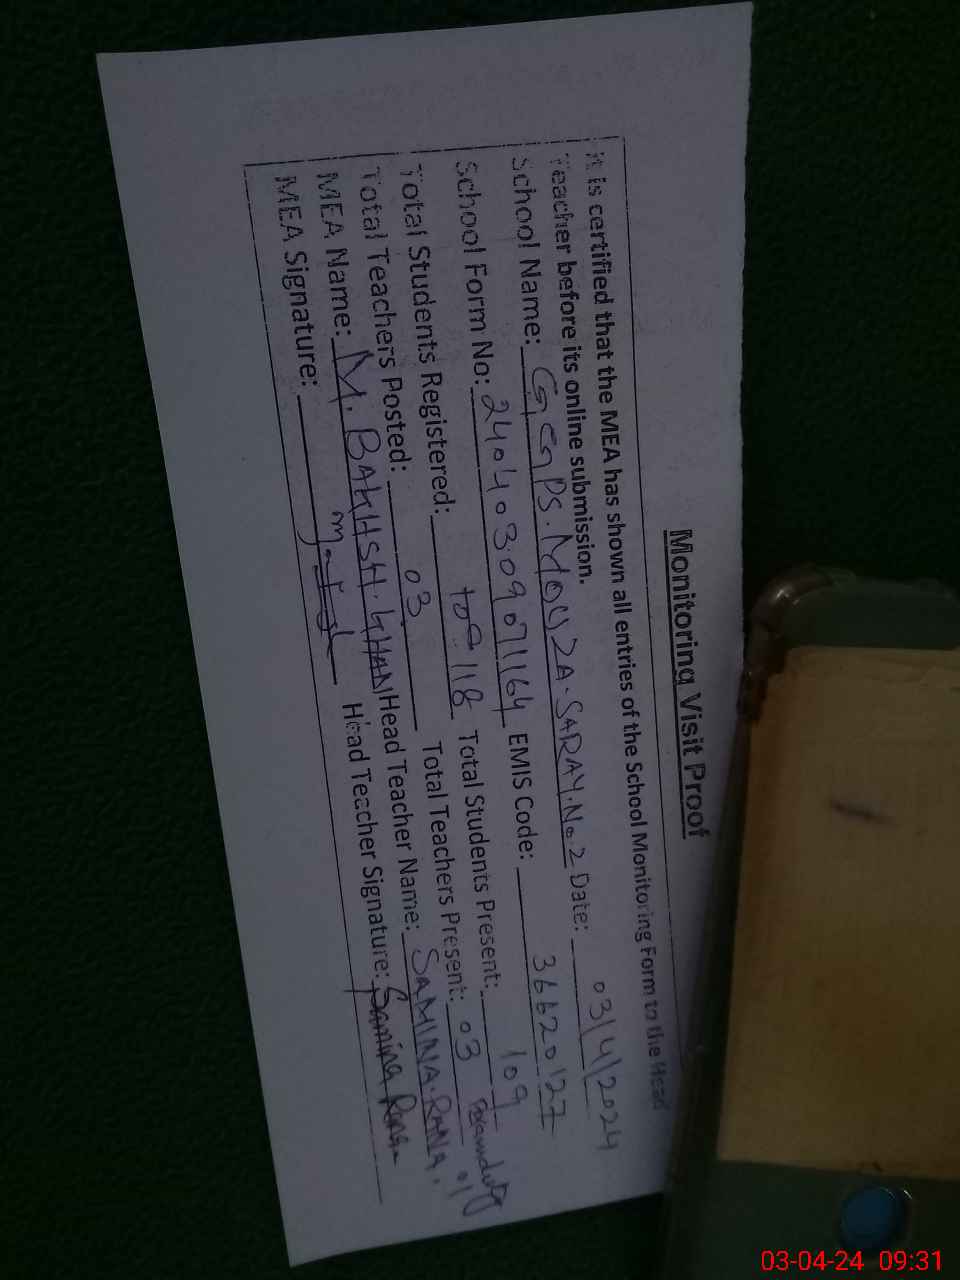 Monitoring Visit Proof
It is certified that the MEA has shown all entries of the School Monitoring Form to the Head
Teacher before its online submission.
School Name: GGPS. MOUZA. SARAY. No. 2 Date: 03/4/2024
School Form No: 240403.09071164 EMIS Code: 36620127
Total Students Registered: 118 Total Students Present: 109
Total Teachers Posted: 03 Total Teachers Present: 03
MEA Name: M. BAKHSH. KHAN Head Teacher Name: SAMINA. RANA.
MEA Signature: Head Teacher Signature: Samina Rana
03-04-24 09:31